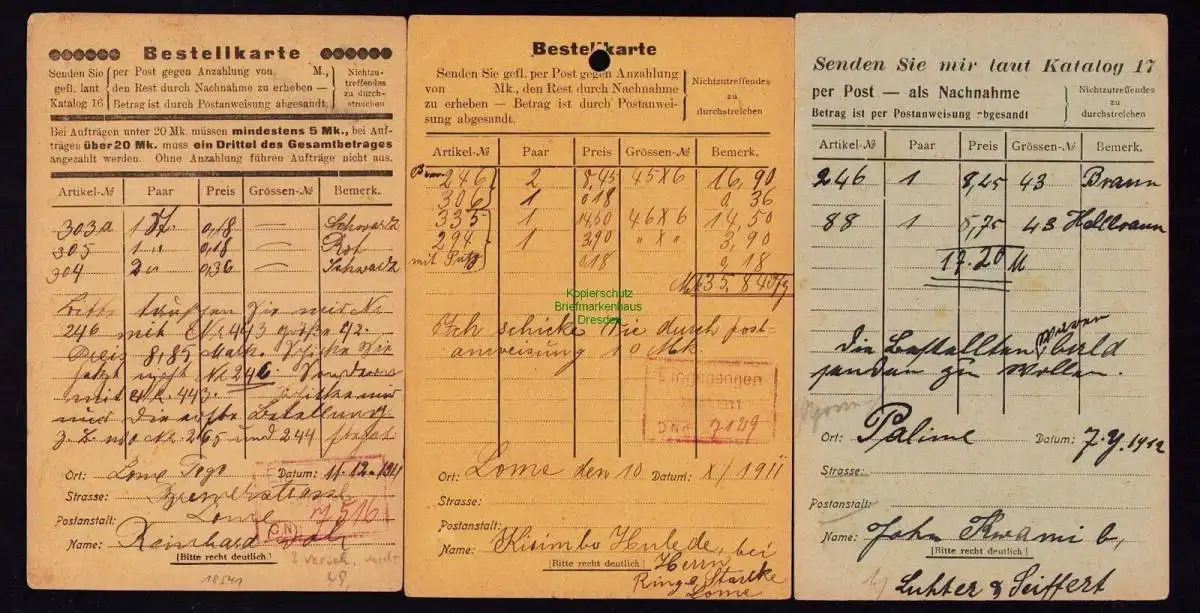 Bestellkarte
Senden Sie gefl. laut Katalog 16
per Post gegen Anzahlung von M.,
den Rest durch Nachnahme zu erheben —
Betrag ist durch Postanweisung abgesandt.
Nichtzu-
treffendes
zu durch-
streichen
Bei Aufträgen unter 20 Mk. müssen mindestens 5 Mk., bei Auf-
trägen über 20 Mk. muss ein Drittel des Gesamtbetrages
angezahlt werden. Ohne Anzahlung führen Aufträge nicht aus.
Artikel-№ Paar Preis Grössen-№ Bemerk.
303a 1 0,18 — Schwartz
305 1 " 0,18 — Rot
304 2 " 0,36 — Schwartz
Bitte tauschen Sie mir Nr
246 mit Nr. 443 größe 42.
Preis 8,85 Mark. Schicke Sie
jetzt nicht Nr. 246. Sondern
mit Nr. 443.
nur die erste Bestellung
z. B. wo Nr. 265 und 244 steht
Ort: Lome Togo Datum: 11.12.1911
Strasse:
Postanstalt: Lome
Name: Reinhard
[Bitte recht deutlich]
7516
18541
48
Bestellkarte
Senden Sie gefl. per Post gegen Anzahlung
von Mk., den Rest durch Nachnahme
zu erheben — Betrag ist durch Postanwei-
sung abgesandt.
Nichtzutreffendes
zu
durchstreichen
Artikel-№ Paar Preis Grössen-№ Bemerk.
246 2 8,45 45 x 6 16,90
306 1 018 0,36
335 1 14,50 46 x 6 14,50
294 1 3,90 " x " 3,90
mit Putz 0,18 0,18
35,84
Ich schicke Sie durch post-
anweisung 10 Mk.
7129
Ort: Lome den 10 Datum: X/1911
Strasse:
Postanstalt:
Name: Kisimbo Hulede, bei
[Bitte recht deutlich]
Herrn
Ringo Starcke
Lome
Kopierschutz
Briefmarkenhaus
Dresden
Senden Sie mir laut Katalog 17
per Post — als Nachnahme
Betrag ist per Postanweisung abgesandt
Nichtzutreffendes
zu
durchstreichen
Artikel-№ Paar Preis Grössen-№ Bemerk.
246 1 8,45 43 Braun
88 1 8,75 43 Hellbraun
17.20 M
Die bestellten Waren bald
senden zu wollen.
Ort: Palime Datum: 7.V.1912
Strasse:
Postanstalt:
Name: John Kwami b,
[Bitte recht deutlich]
Luhter & Seiffert